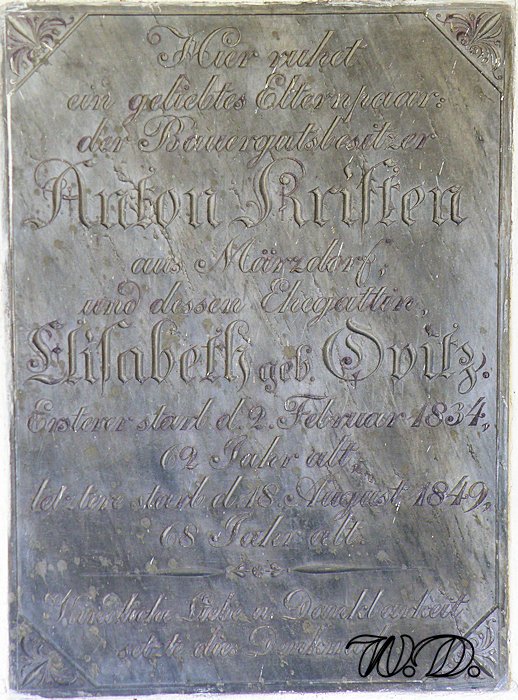 Hier ruhet
ein geliebtes Elternpaar:
der Bauergutsbesitzer
Anton Kriſten
aus Märzdorf,
und dessen Ehegattin,
Eliſabeth geb. Opitz.
Ersterer starb d. 2. Februar 1834,
62 Jahr alt,
letztere starb d. 18. August 1849,
68 Jahr alt.
Kindliche Liebe u. Dankbarkeit
setzte dies
W. D.